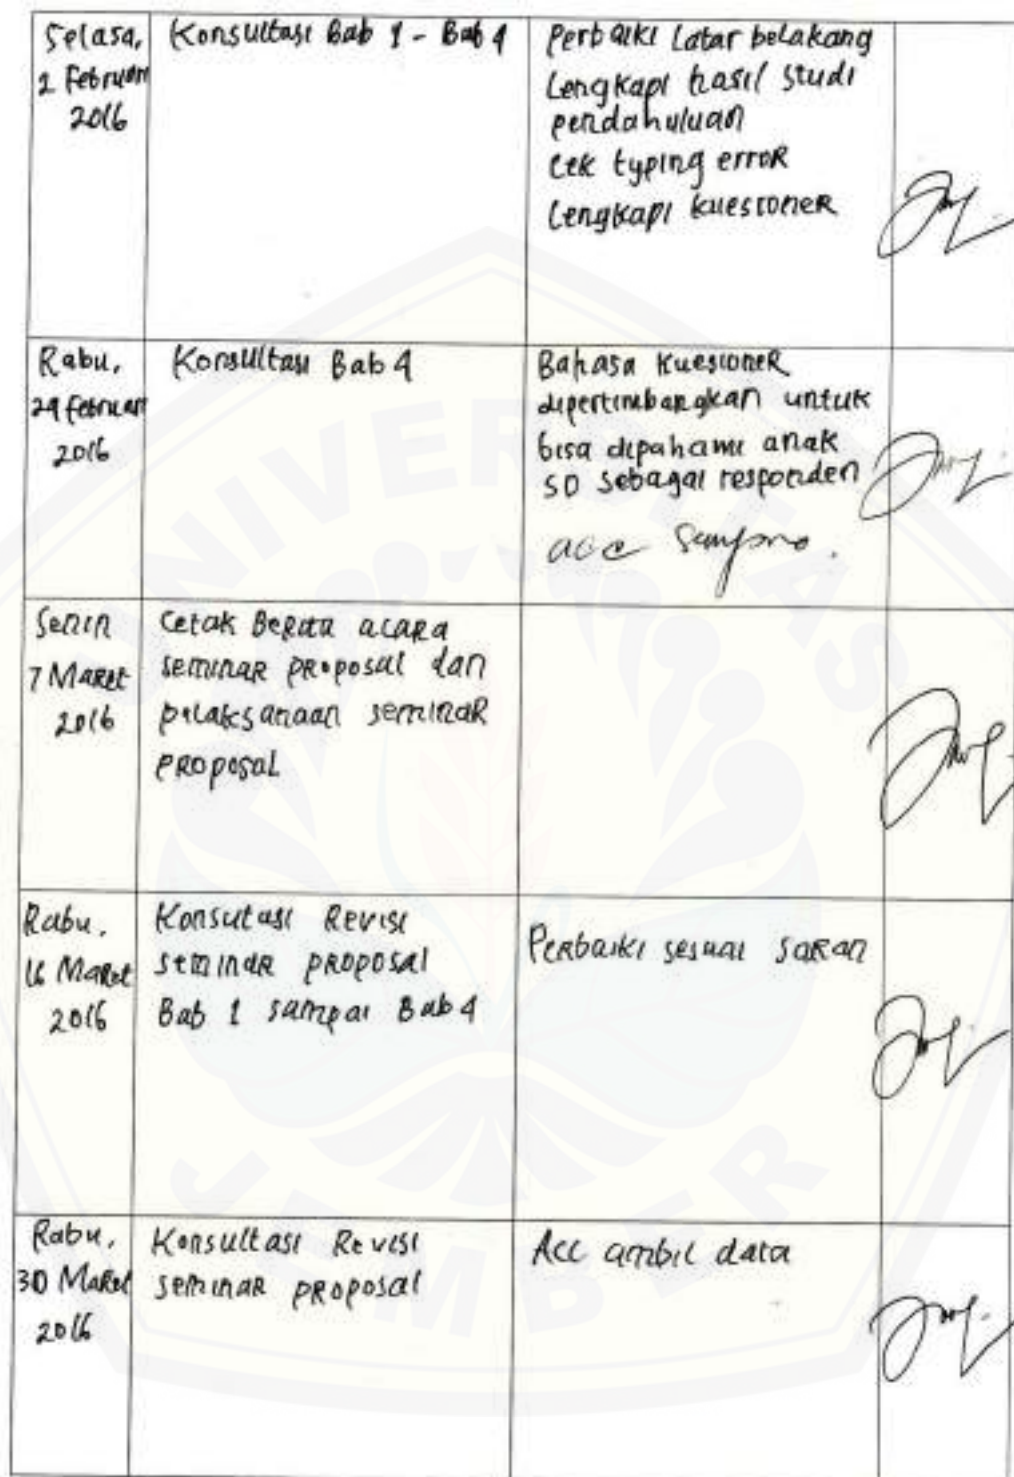 Selasa,
2 Februari
2016
Konsultasi Bab 1 - Bab 4
Perbaiki Latar belakang
Lengkapi hasil studi
pendahuluan
Cek typing error
Lengkapi kuesioner
Rabu,
24 Februari
2016
Konsultasi Bab 4
Bahasa Kuesioner
dipertimbangkan untuk
bisa dipahami anak
SD sebagai responden
acc Sempro.
Senin
7 Maret
2016
Cetak Berita acara
seminar proposal dan
pelaksanaan seminar
proposal
Rabu,
16 Maret
2016
Konsutasi Revisi
seminar proposal
Bab 1 sampai Bab 4
Perbaiki sesuai saran
Rabu,
30 Maret
2016
Konsultasi Revisi
seminar proposal
Acc ambil data
UNIVERSITAS
JEMBER